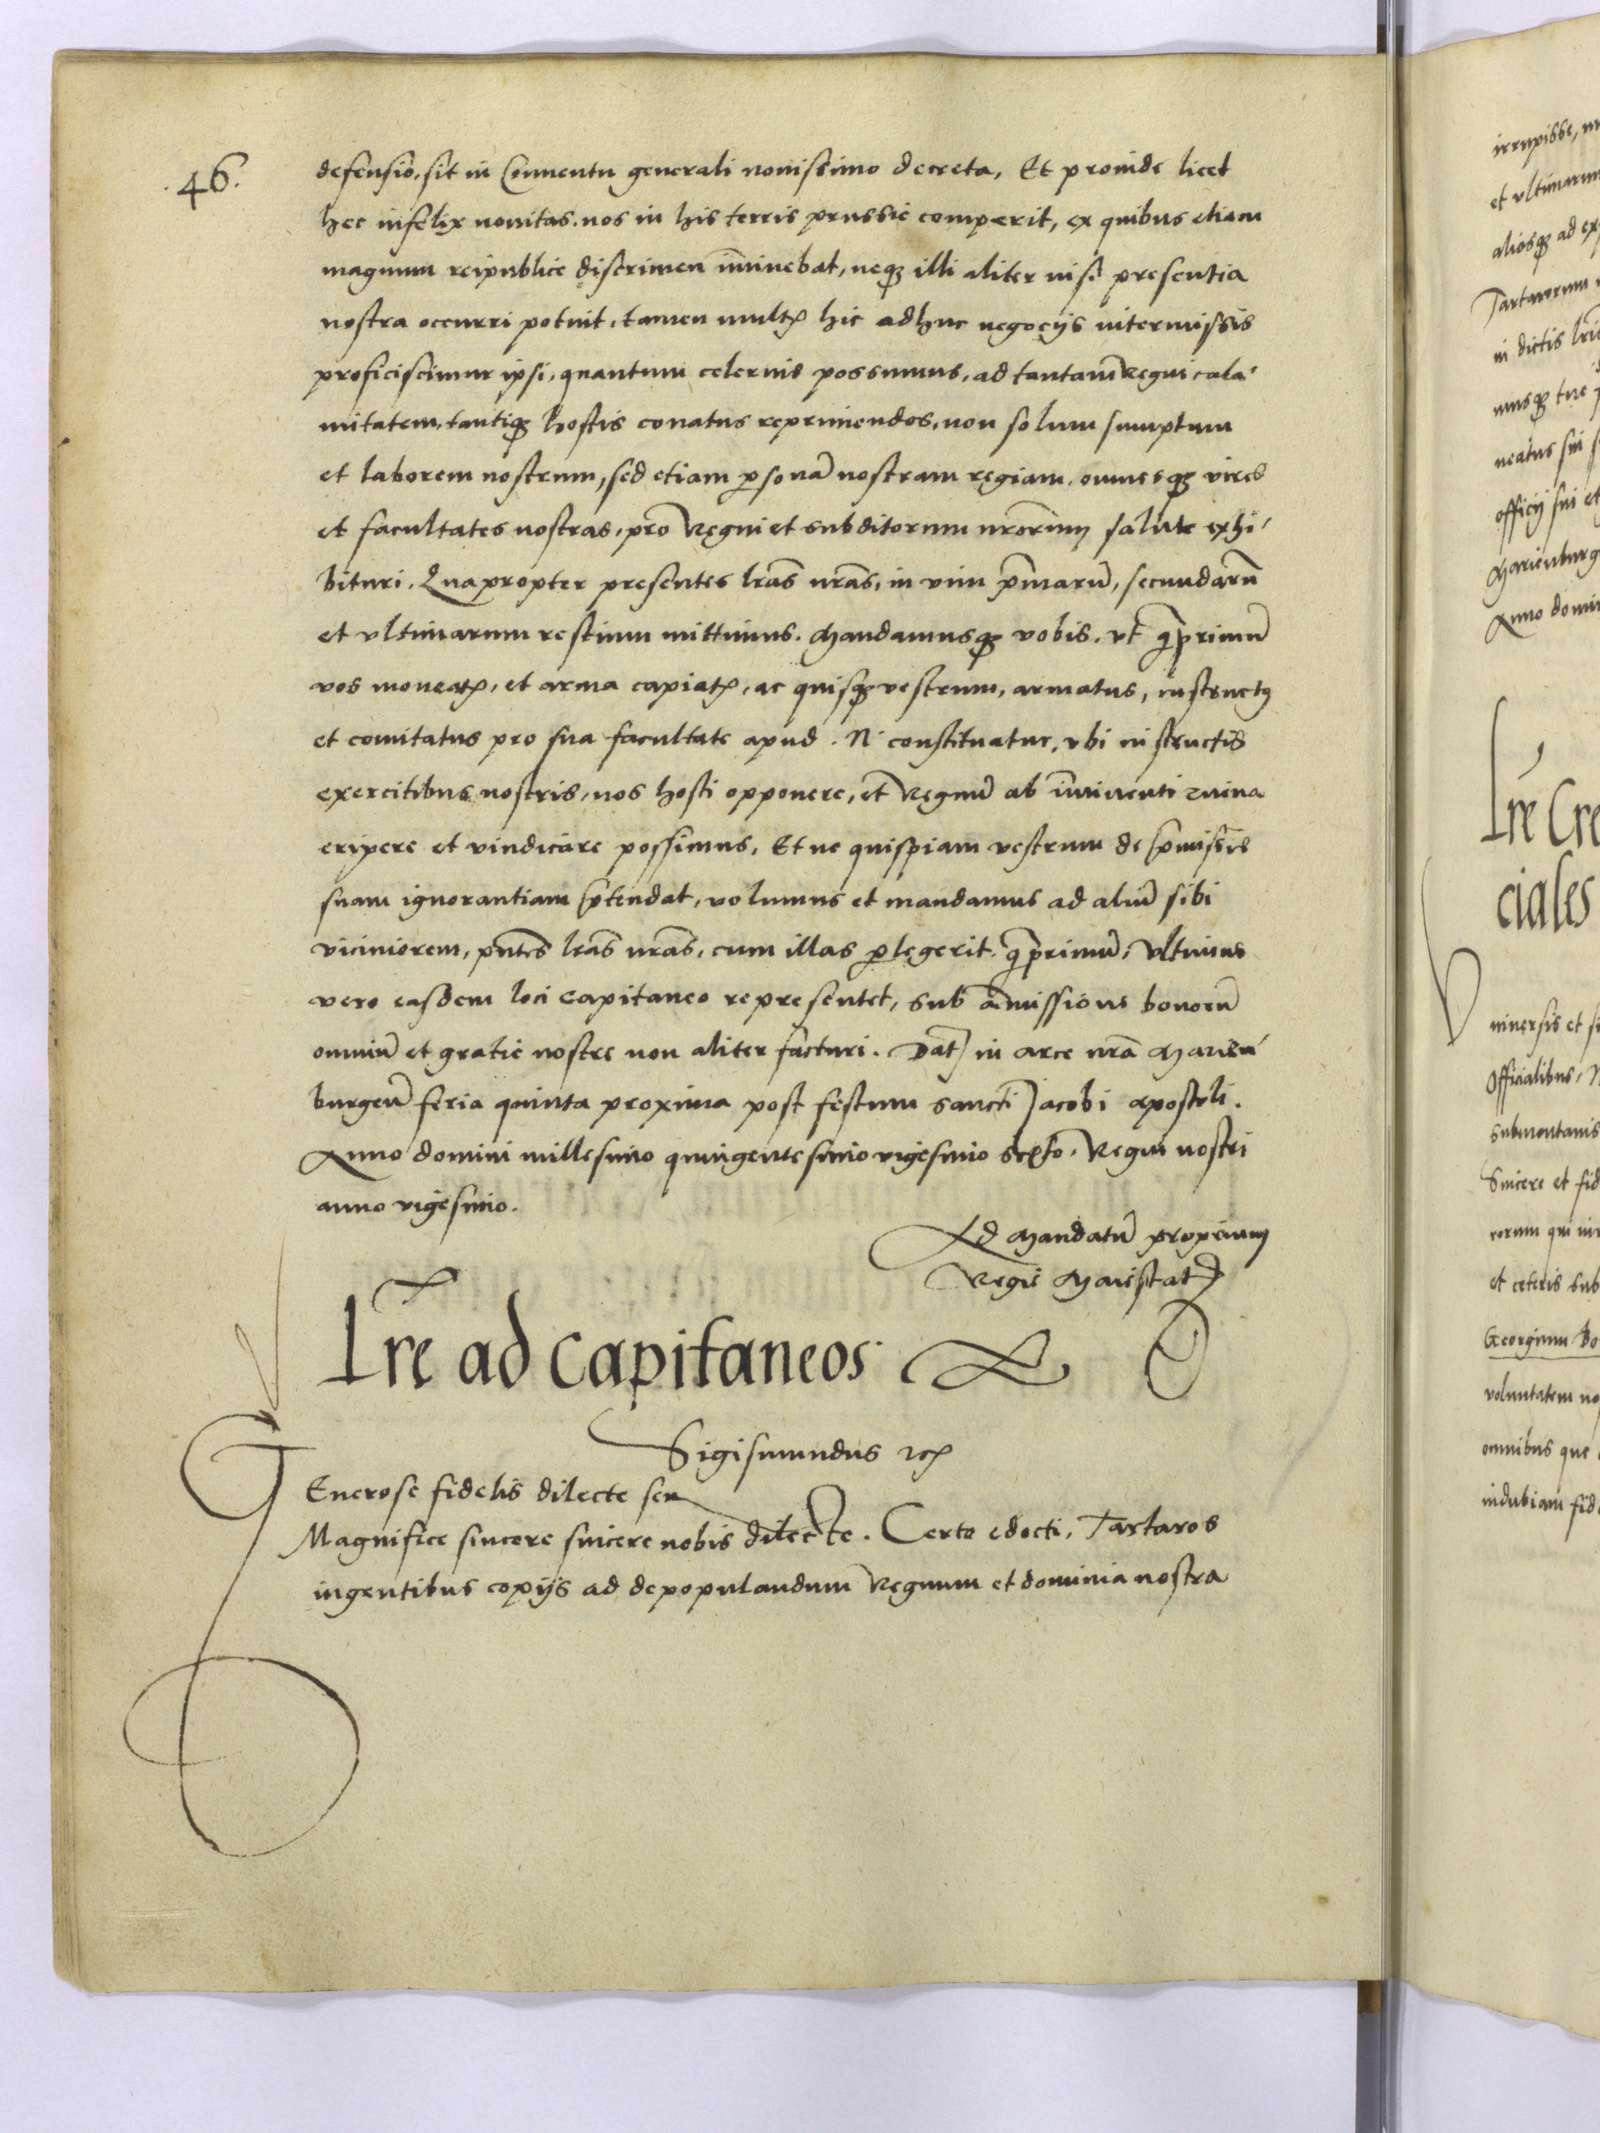 46.
defensio, sit in Conventu generali novissimo decreta, Et proinde licet
hec infelix novitas. nos in his terris prussie comperit, ex quibus etiam
magnum reipublice discrimen im̄inebat, neq3 illi aliter nisi presentia
nostra occurri potuit, tamen multꝭ hic adhuc negocijs intermissis
proficiscimur ipsi, quantum celerius possumus, ad tantam̄ Regni cala-
mitatem, tantiq3 hostis conatus reprimendos, non solum sumptum
et laborem nostrum, sed etiam ꝑsonā nostram regiam. omnesq3 vires
et facultates nostras, pro Regni et subditorum nr̄orum salute exhi-
bituri. Quapropter presentes lr̄as nr̄as, in vim pr̄marū, secundarū
et vltimarum restium mittimus. Mandamusq3 vobis. vt q̄primū
vos moveatꝭ, et arma capiatꝭ, ac quisq3 vestrum, armatus, instructꝰ
et comitatus pro sua facultate apud . N. constituatur, vbi instructis
exercitibus nostris, nos hosti opponere, et Regnū ab im̄inenti ruina
eripere et vindicare possimus, Et ne quispiam vestrum de p̄missis
suam ignorantiam p̄tendat, volumus et mandamus ad aliū sibi
viciniorem, pn̄tes lr̄as nr̄as, cum illas ꝑlegerit q̄primū, Vltimus
vero easdem loci capitaneo representet, sub amissione bonorū
omniū et gratie nostre non aliter facturi. Dat̄ in arce nr̄a Marien-
burgen̄ feria quinta proxima post festum sancti Jacobi apostoli.
Anno domini millesimo quingentesimo vigesimo sexto. Regni nostri
anno vigesimo.
Ad Mandatū proprium
Regie Maiestatꝭ
Lr̄e ad Capitaneos
Sigismundus rex
GEnerose fidelis dilecte seu
Magnifice sincere sincere nobis dilecte. Certo edocti, Tartaros
ingentibus copijs ad depopulandum Regnum et dominia nostra
irrupisse,
et vltimarum
aliosq3 ad
Tartarorum
in dictis
musq3 tue
neatus sui
officij sui et
Marienburg
Anno domi
Lr̄e Cre
ciales
Vniversis et si
Officialibus, N
submontanis
Sincere et fid
rorum qui
et ceteris sub
Georgium Bo
voluntatem no
omnibus que
indubiam fid